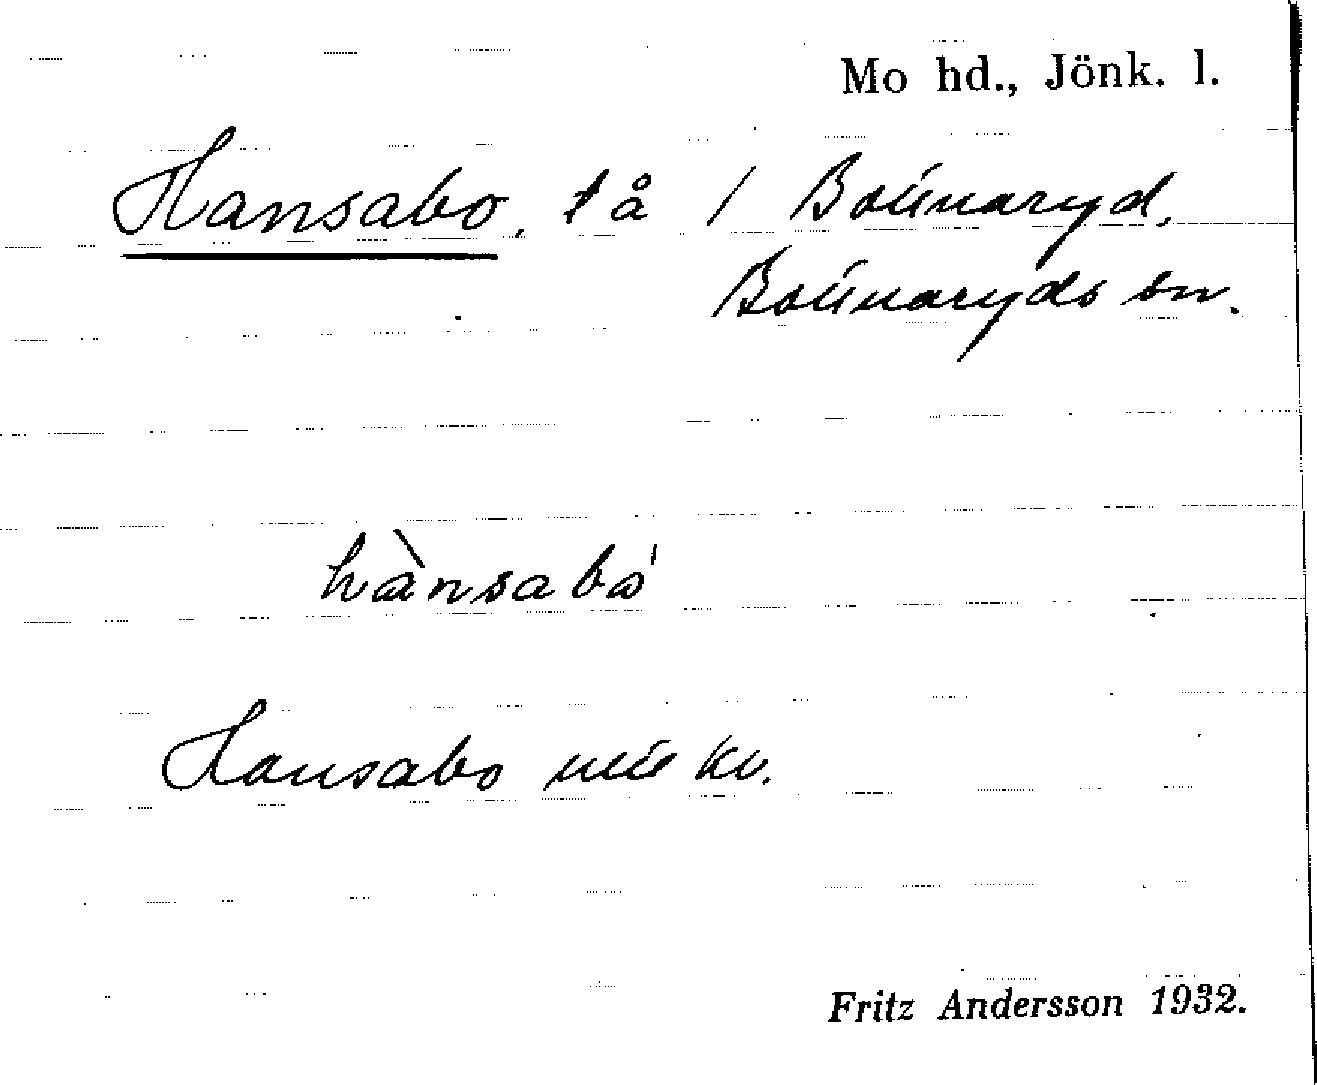 Mo hd., Jönk. l.
Hansabo, tå / Bottnaryd,
Bottnaryds sn.
hànsabo'
Hansabo
Fritz Andersson 1932.